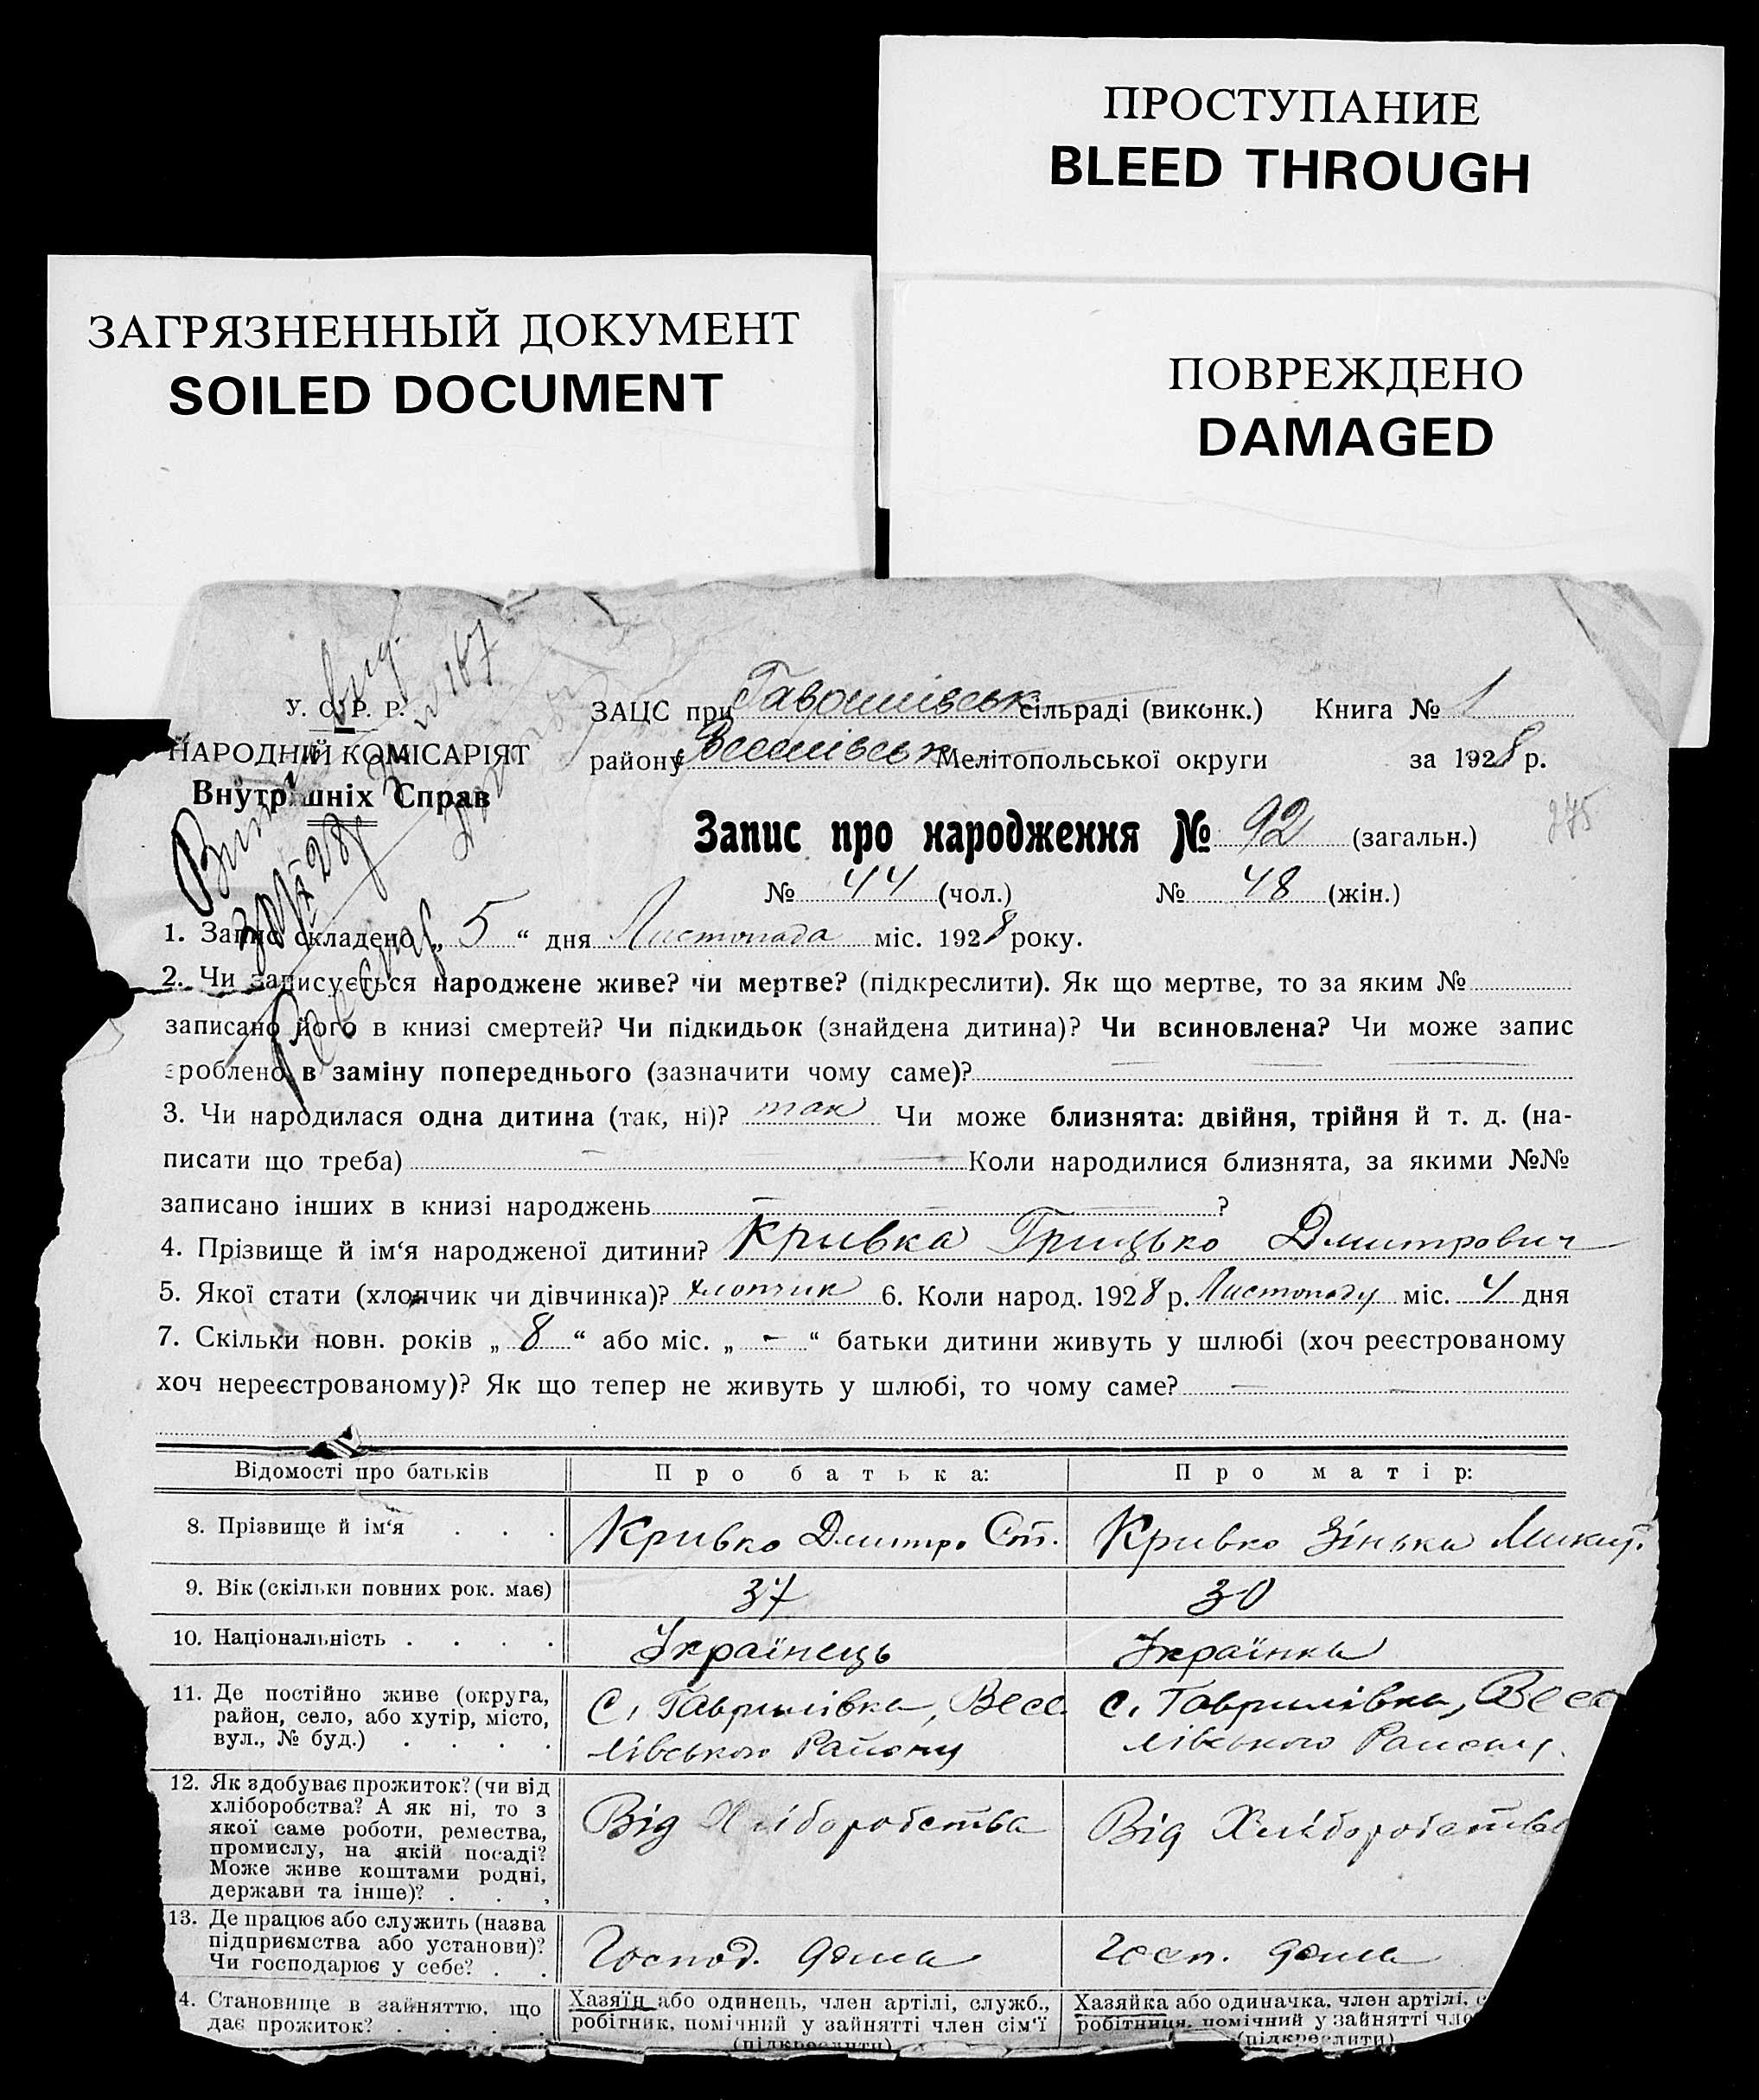 ПРОСТУПАНИЕ
BLEED THROUGH
ЗАГРЯЗНЕННЫЙ ДОКУМЕНТ
SOILED DOCUMENT
ПОВРЕЖДЕНО
DAMAGED
У. С. Р. Р.
НАРОДНІЙ КОМІСАРІЯТ
Внутрішніх Справ
ЗАЦС при сільраді (виконк.) Книга № 1
району Мелітопольської округи за 1928 р.
Запис про народження № 92 (загальн.)
275
№ 44 (чол.) № 48 (жін.)
1. Запис складено „ 5 “ дня Листопада міс. 1928 року.
2. Чи записується народжене живе? чи мертве? (підкреслити). Як що мертве, то за яким №
записано його в книзі смертей? Чи підкидьок (знайдена дитина)? Чи всиновлена? Чи може запис
зроблено в заміну попереднього (зазначити чому саме)?
3. Чи народилася одна дитина (так, ні)? так Чи може близнята: двійня, трійня й т. д. (на-
писати що треба) — Коли народилися близнята, за якими №№
записано інших в книзі народжень — ?
4. Прізвище й ім‘я народженої дитини? Кривка Грицько Дмитрович
5. Якої стати (хлопчик чи дівчинка)? хлопчик 6. Коли народ. 1928 р. Листопаду міс. 4 дня
7. Скільки повн. років „ 8 “ або міс. „ - “ батьки дитини живуть у шлюбі (хоч реєстрованому
хоч нереєстрованому)? Як що тепер не живуть у шлюбі, то чому саме? —
Відомості про батьків Про батька: Про матір:
8. Прізвище й ім‘я . . . Кривко Дмитро Ст. Кривко Зінька Микит.
9. Вік (скільки повних рок. має) 37 30
10. Національність . . . . Українець Українка
11. Де постійно живе (округа,
район, село, або хутір, місто,
вул., № буд.) . . . .
С. Гаврилівка, Весе
лівського Району
С. Гаврилівка, Весе
лівського Району.
12. Як здобуває прожиток? (чи від
хліборобства? А як ні, то з
якої саме роботи, ремества,
промислу, на якій посаді?
Може живе коштами родні,
держави та інше)? . . .
Від Хліборобства
Від Хліборобства
13. Де працює або служить (назва
підприємства або установи)?
Чи господарює у себе? . .
Господ. дома
Госп. дома
4. Становище в зайняттю, що
дає прожиток? . . . .
Хазяїн або одинець, член артілі, служб.,
робітник, помічний у зайнятті член сім‘ї
(підкреслити)
Хазяйка або одиначка, член артілі,
робітниця, помічний у зайнятті
(підкреслити)